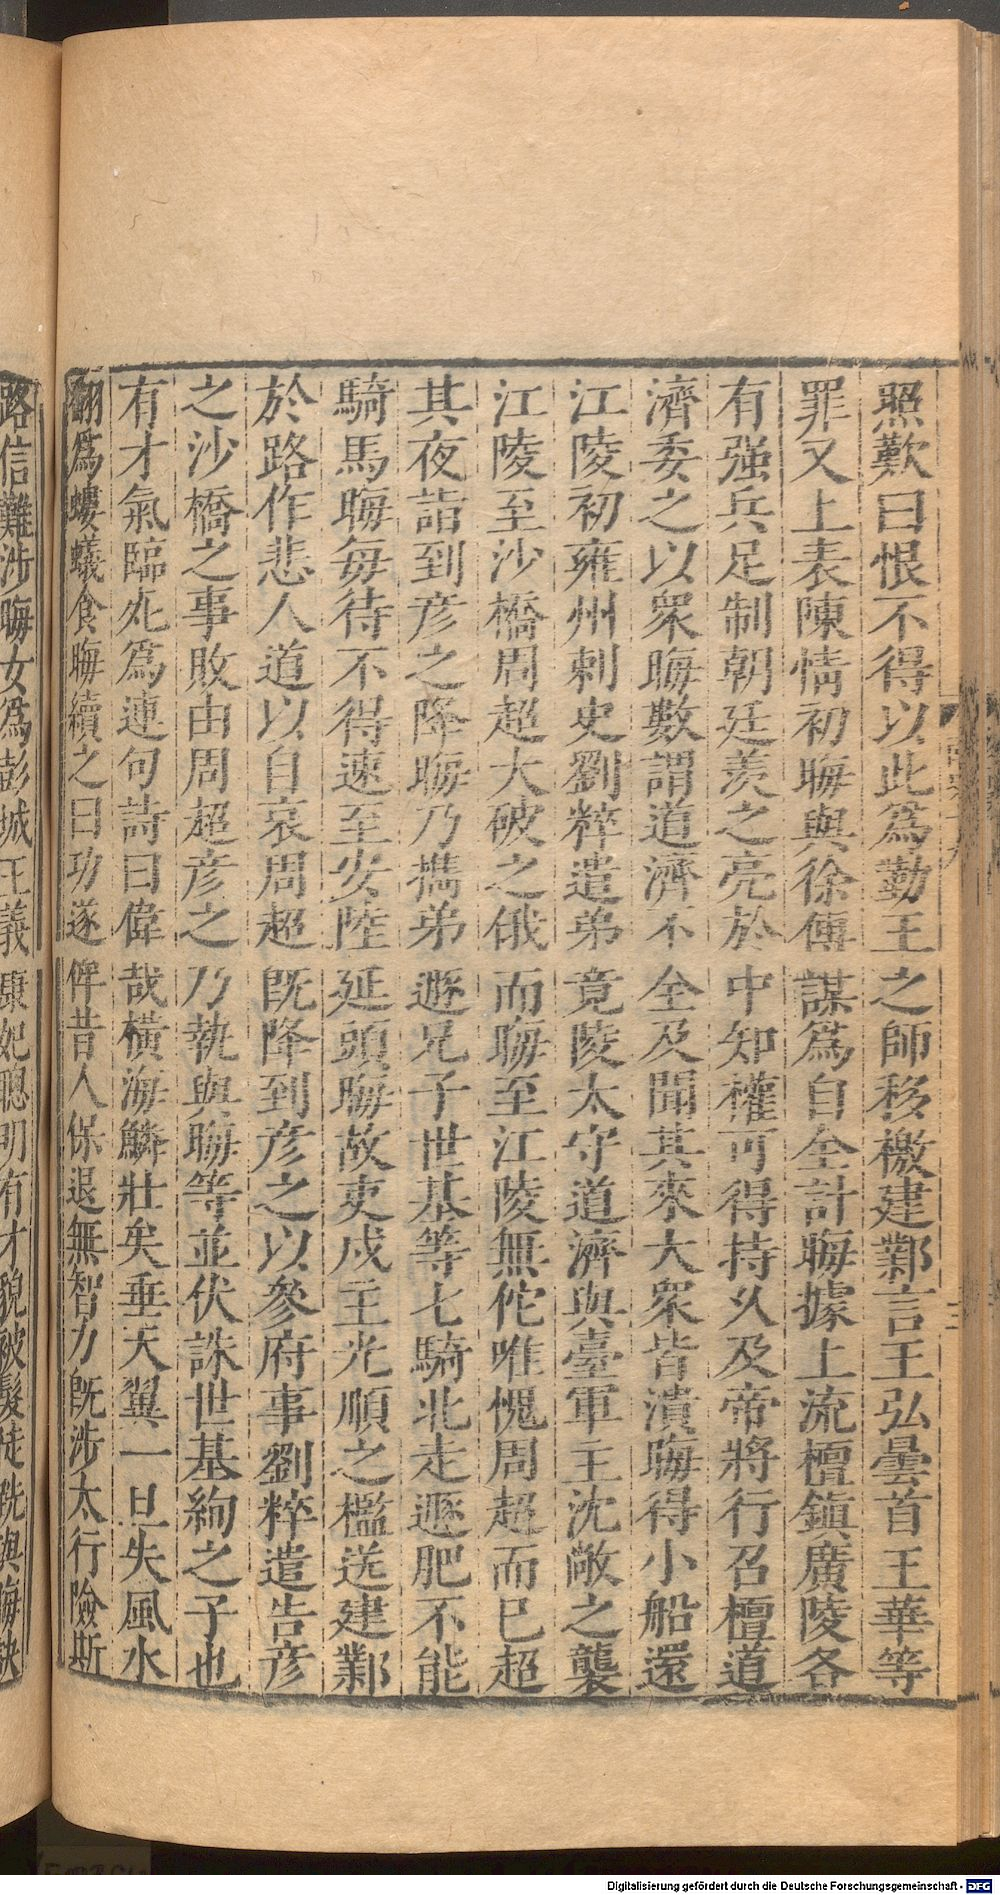 照歎曰恨不得以此爲勤王之師移檄建鄴言王弘曇首王華等
罪又上表陳情初晦與徐傅謀爲自全計晦據上流檀鎭廣陵各
有强兵足制朝廷羨之亮於中知權可得持久及帝將行召檀道
濟委之以衆晦數謂道濟不全及聞其來大衆皆潰晦得小船還
江陵初雍州剌史劉粹遣弟竟陵太守道濟與臺軍主沈敞之襲
江陵至沙橋周超大破之俄而晦至江陵無佗唯愧周超而已超
其夜詣到彦之降晦乃攜弟遯兄子世基等七騎北走遯肥不能
騎馬晦每待不得速至安陸延頭晦故吏戍主光順之檻送建鄴
於路作悲人道以自哀周超既降到彦之以參府事劉粹遣告彦
之沙橋之事敗由周超彦之乃執與晦等並伏誅世基絢之子也
有才氣臨死爲連句詩曰偉哉橫海鱗壯矣垂天翼一旦失風水
翻爲螻蟻食晦續之曰功遂侔昔人保退無智力既涉太行險斯
路信難涉晦女爲彭城王義康妃聰明有才貌被髮徒跣與晦訣
Digitalisierung gefördert durch die Deutsche Forschungsgemeinschaft - DFG